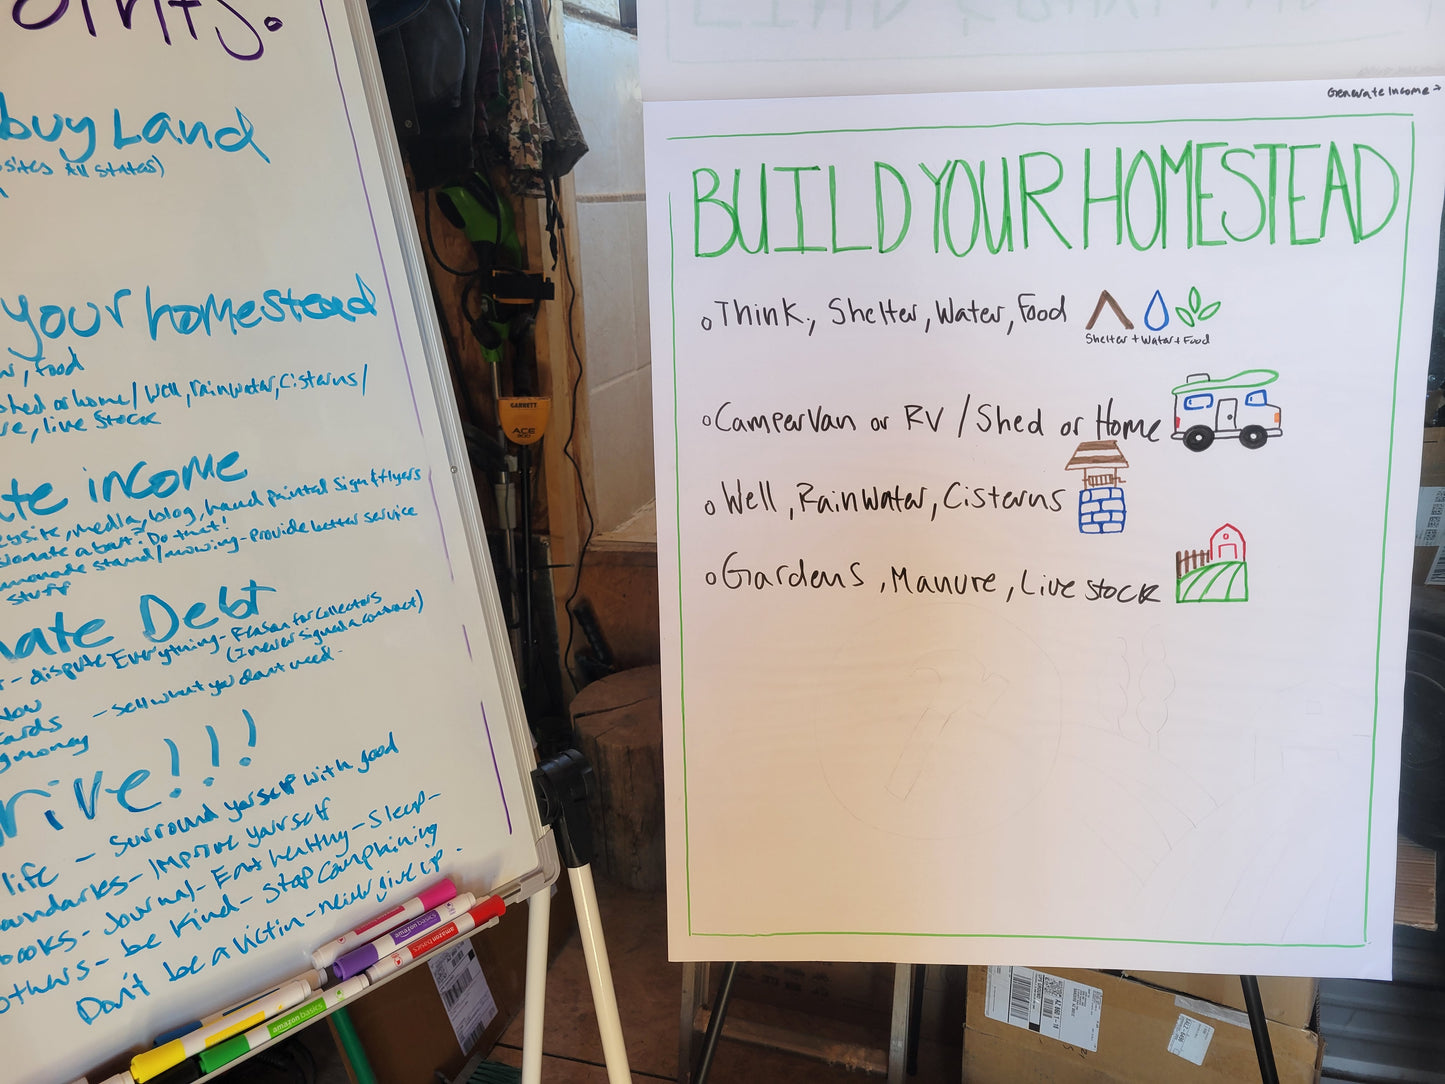 buy Land
All States)
your homestead
, food
shed or home/ Well, rainwater, Cisterns/
, live Stock
income
media, blog, hand painted sign & flyers
Do that!
stand/mowing - Provide better service
stuff
Debt
- dispute Everything - Reason for Collectors
(I never signed a contract)
- sell what you dont need -
money
!!!
life - Surround yourself with good
- Improve yourself
books - Journal - Eat healthy - Sleep -
others - be kind - stop complaining
Don't be a victim - never give up.
GARRETT
ACE
amazon basics
amazon basics
amazon basics
Generate Income →
BUILD YOUR HOMESTEAD
Think, Shelter, Water, Food
Shelter + Water + Food
Camper Van or RV / Shed or Home
Well, Rainwater, Cisterns
Gardens, Manure, Live stock